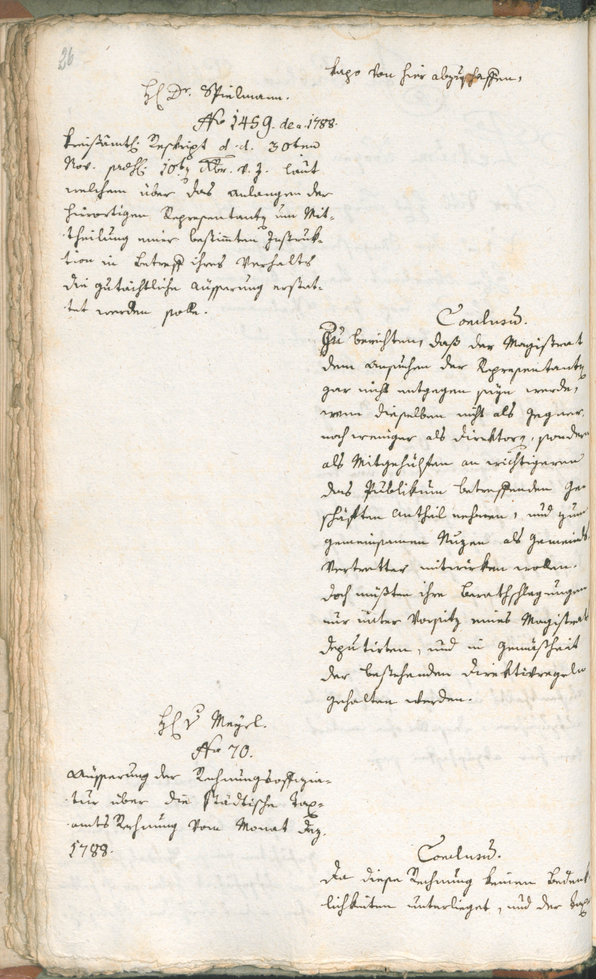 26
tags von hier abzuschaffen.
H. Dr. Spielmann.
No 1459. de a. 1788.
Kreisämtl: Reskript d. d. 30ten
Nov. 10ten Xbr. v. J. laut
welchem über das Anlangen der
hierortigen Repräsentanten um Mit-
theilung einer bestimmten Instruk-
tion in Betreff ihres Verhalts
die gutächtliche Äusserung erstat-
tet werden solle.
Conclusum.
Zu berichten, daß der Magistrat
dem Ansuchen der Repräsentanten
gar nicht entgegen seyn werde,
wenn dieselben nicht als Gegner,
noch weniger als Direktors, sondern
als Mitgehülfen an wichtigeren
das Publikum betreffenden Ge-
schäften Antheil nehmen, und zum
gemeinsamen Nuzen als Gemeinde
Vertretter mitwirken wollen.
Doch müßten ihre Berathschlagungen
nur unter Vorsitz eines Magistrats
Deputirten, und in Gemäsheit
der bestehenden Direktivregeln
gehalten werden.
H. v Meyrl.
No 70.
Äusserung der Rechnungsoffizia-
tur über die städtische Tax-
amts Rechnung vom Monat Dez.
1788.
Conclusum.
Da diese Rechnung keinen Bedenk-
lichkeiten unterlieget, und der Tax